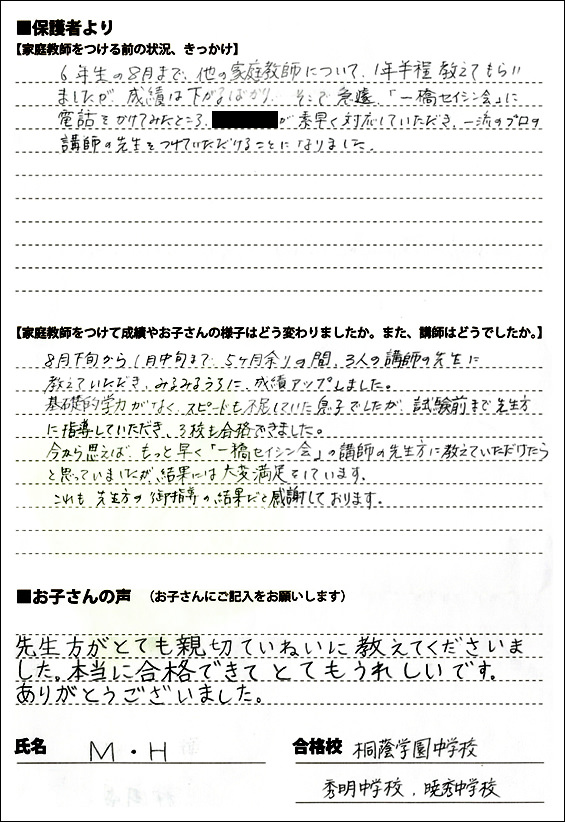 ■保護者より
【家庭教師をつける前の状況、きっかけ】
6年生の8月まで、他の家庭教師について、1年半程教えてもらい
ましたが、成績は下がるばかり。そこで急遽、「一橋セイシン会」に
電話をかけてみたところ、 が素早く対応していただき、一流のプロの
講師の先生をつけていただけることになりました。
【家庭教師をつけて成績やお子さんの様子はどう変わりましたか。また、講師はどうでしたか。】
8月下旬から1月中旬まで、5ヶ月余りの間、3人の講師の先生に
教えていただき、みるみるうちに、成績アップしました。
基礎的学力がなく、スピードも不足していた息子でしたが、試験前まで先生方
に指導していただき、3校も合格できました。
今から思えば、もっと早く「一橋セイシン会」の講師の先生方に教えていただけたら
と思っていましたが、結果には大変満足をしています。
これも先生方の御指導の結果だと感謝しております。
■お子さんの声 (お子さんにご記入をお願いします)
先生方がとても親切ていねいに教えてくださいま
した。本当に合格できてとてもうれしいです。
ありがとうございました。
氏名 M・H 合格校 桐蔭学園中学校
秀明中学校、暁秀中学校